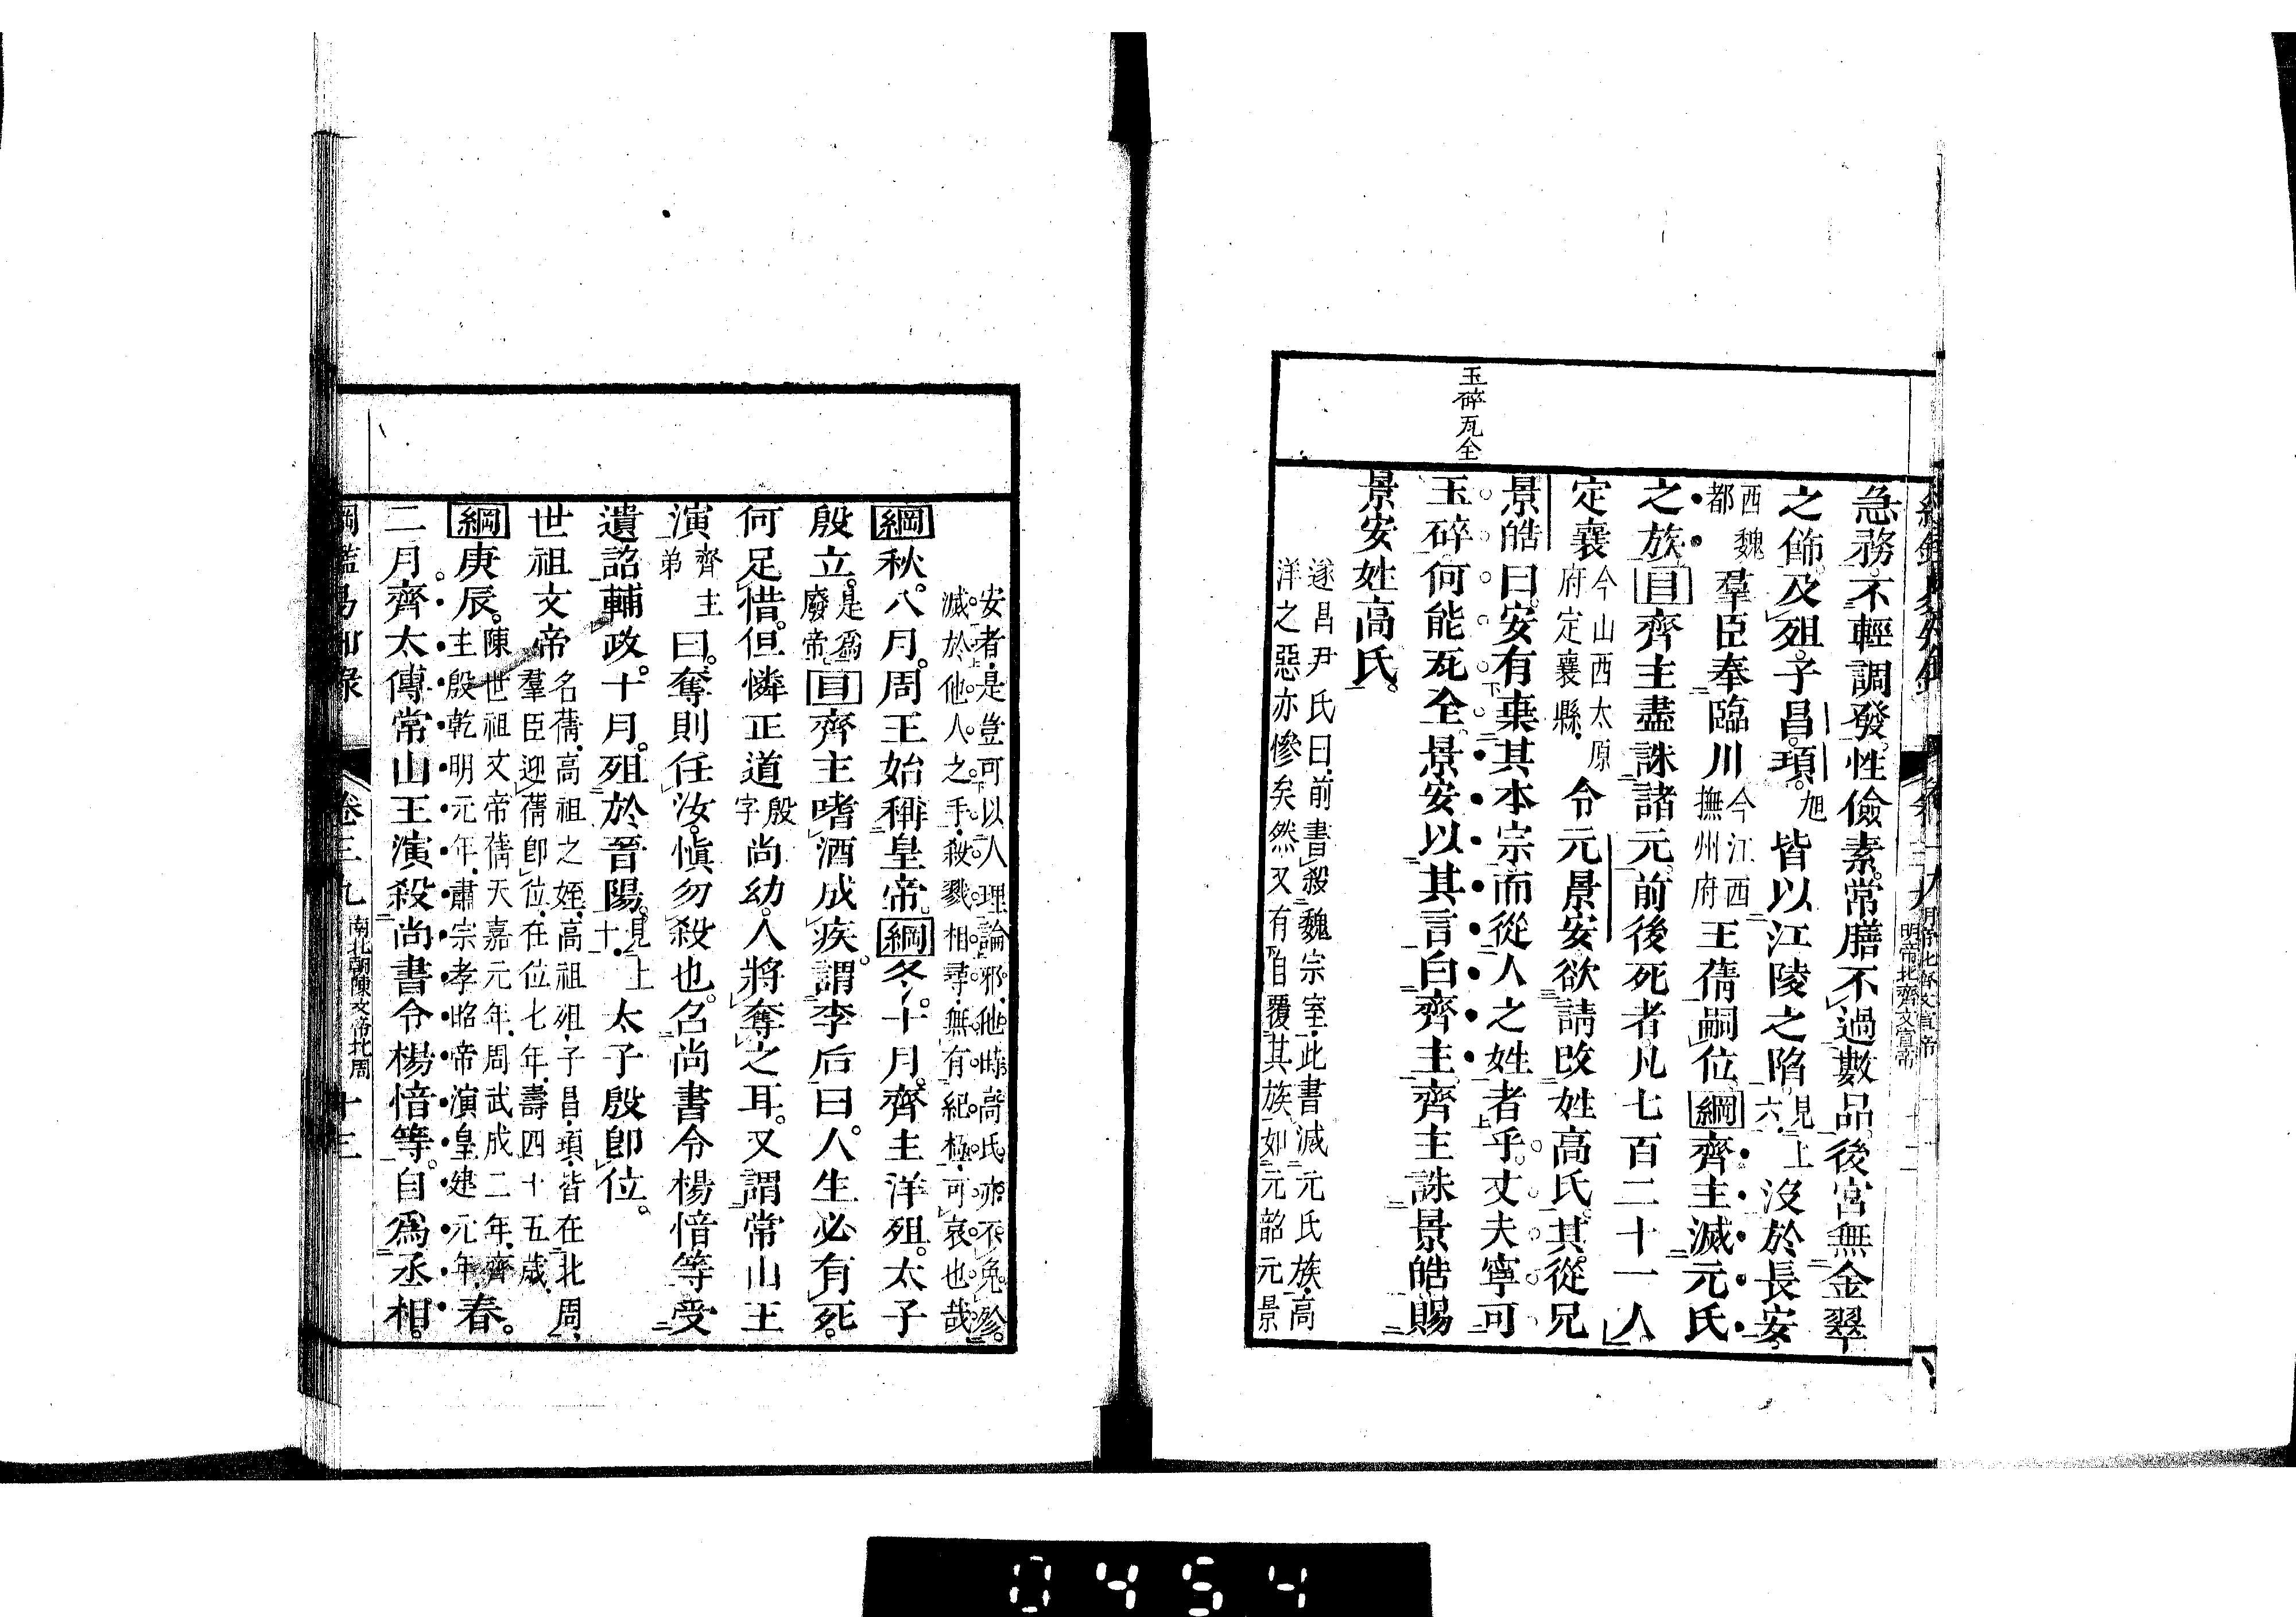 玉碎瓦全
急務不輕調發。性儉素。常膳不過數品。後宮無金翠
之飾。及殂。子昌。頊。旭皆以江陵之陷見上六。沒於長安。
西魏都羣臣奉臨川今江西撫州府王蒨嗣位。綱齊主滅元氏
之族目齊主盡誅諸元。前後死者凡七百二十一人
定襄今山西太原府定襄縣。令元景安欲請改姓高氏。其從兄
景皓曰。安有棄其本宗而從人之姓者乎。丈夫寧可
玉碎。何能瓦全。景安以其言白齊主。齊主誅景皓。賜
景安姓高氏。
遂昌尹氏曰。前書殺魏宗室。此書滅元氏族。高
洋之惡亦慘矣。然又有自覆其族。如元韶元景
安者。是豈可以人理論邪。他時高氏亦不免殄
滅於他人之手。殺戮相尋。無有紀極。可哀也哉
綱秋。八月。周王始稱皇帝。綱冬。十月。齊主洋殂。太子
殷立。是爲廢帝。目齊主嗜酒成疾。謂李后曰。人生必有死。
何足惜。但憐正道殷字尚幼。人將奪之耳。又謂常山王
演齊主弟曰。奪則任汝。愼勿殺也。召尚書令楊愔等受
遺詔輔政。十月。殂於晉陽。見上十。太子殷卽位。
世祖文帝名蒨。高祖之姪。高祖殂。子昌。頊。皆在北周。
羣臣迎蒨卽位。在位七年。壽四十五歲。
綱庚辰。陳世祖文帝蒨天嘉元年。周武成二年。齊主殷乾明元年。肅宗孝昭帝演皇建元年。春。
二月。齊太傅常山王演殺尚書令楊愔等。自爲丞相。
綱鑑易知錄 卷三九 南北朝陳文帝北周 十三
0454